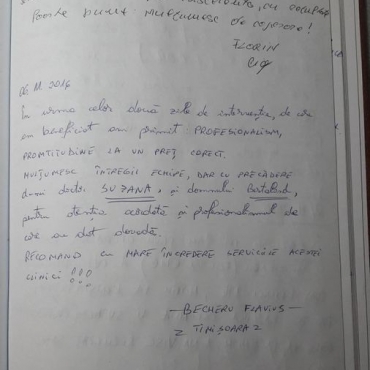 foarte bune. Mulțumesc de cooperare!
FLORIN
06.11.2016
În urma celor două zile de intervenție, de care
am beneficiat am primit PROFESIONALISM,
PROMTITUDINE LA UN PREȚ CORECT.
MULȚUMESC ÎNTREGII ECHIPE, DAR CU PRECĂDERE
dnei doctor SUZANA, și domnului
pentru atenția acordată și profesionalismul de
care au dat dovadă.
RECOMAND cu MARE ÎNCREDERE SERVICIILE ACESTEI
clinici !!!
— BECHERU FLAVIUS —
TIMIȘOARA